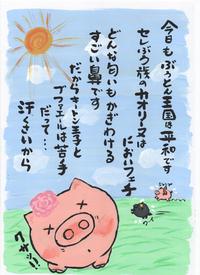 今日もぶうとん王国は平和です
セレぶう族のカオリーヌは
においフェチ
どんな匂いもかぎわける
すごい鼻です
だからキートン王子と
ブフェールは苦手
だって…
汗くさいから